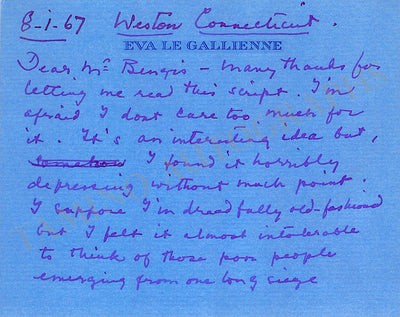 8-1-67 Weston Connecticut.
EVA LE GALLIENNE
Dear Mr Bengis — Many thanks for
letting me read this script. I'm
afraid I dont care too much for
it. It's an interesting idea but,
somehow I found it horribly
depressing without much point.
I suppose I'm dreadfully old-fashioned
but I felt it almost intolerable
to think of those poor people
emerging from one long siege